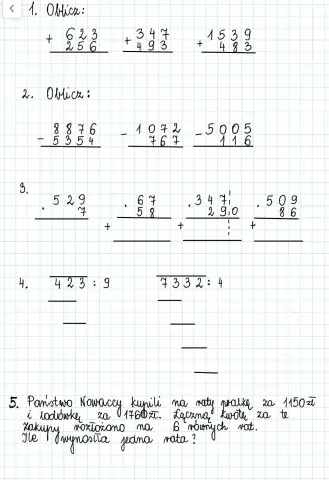 1. Oblicz:
+ 623 + 347 + 1539
256 493 483
2. Oblicz:
8876 - 1072 - 5005
- 5354 767 116
3.
. 529 . 67 . 347 . 509
7 58 290 86
+ + +
4. 423 : 9 7332 : 4
5. Państwo Nowaccy kupili na raty pralkę za 1150 zł
i lodówkę za 1760 zł. Łączną kwotę za te
zakupy rozłożono na 6 równych rat.
Ile wynosiła jedna rata?